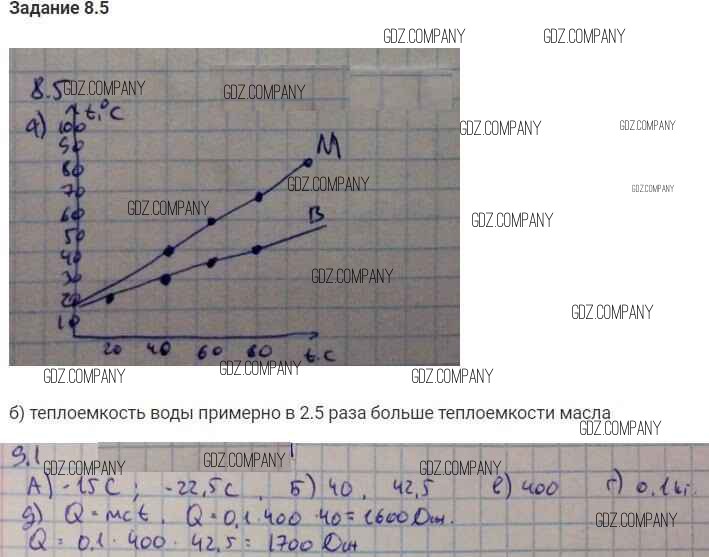 Задание 8.5
GDZ.COMPANY GDZ.COMPANY
8.5 GDZ.COMPANY GDZ.COMPANY
а) t,°C
100
90
80
70
60
50
40
30
20
10
М
В
GDZ.COMPANY GDZ.COMPANY
GDZ.COMPANY GDZ.COMPANY
GDZ.COMPANY GDZ.COMPANY
GDZ.COMPANY
GDZ.COMPANY
20 40 60 80 t.c
GDZ.COMPANY GDZ.COMPANY GDZ.COMPANY
б) теплоемкость воды примерно в 2.5 раза больше теплоемкости масла
GDZ.COMPANY
9.1 GDZ.COMPANY GDZ.COMPANY
А) -15 С ; -22,5 С , Б) 40 , 42,5 в) 400 г) 0,1 кг.
д) Q = mct . Q = 0,1 · 400 · 40 = 1600 Дж.
GDZ.COMPANY
Q = 0,1 · 400 · 42,5 = 1700 Дж